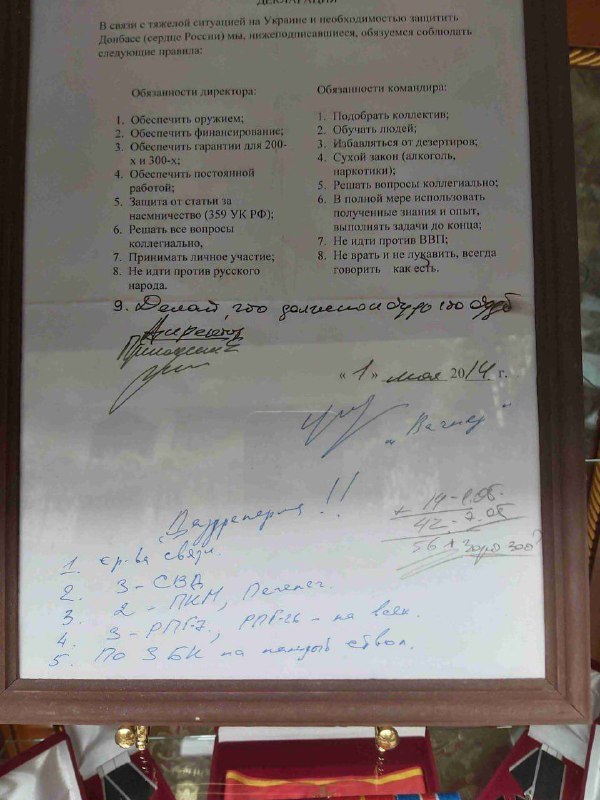 ДЕКЛАРАЦИЯ
В связи с тяжелой ситуацией на Украине и необходимостью защитить
Донбасс (сердце России) мы, нижеподписавшиеся, обязуемся соблюдать
следующие правила:
Обязанности директора:
1. Обеспечить оружием;
2. Обеспечить финансирование;
3. Обеспечить гарантии для 200-
х и 300-х;
4. Обеспечить постоянной
работой;
5. Защита от статьи за
насмничество (359 УК РФ);
6. Решать все вопросы
коллегиально,
7. Принимать личное участие;
8. Не идти против русского
народа.
Обязанности командира:
1. Подобрать коллектив;
2. Обучать людей;
3. Избавляться от дезертиров;
4. Сухой закон (алкоголь,
наркотики);
5. Решать вопросы коллегиально;
6. В полной мере использовать
полученные знания и опыт,
выполнять задачи до конца;
7. Не идти против ВВП;
8. Не врать и не лукавить, всегда
говорить как есть.
9. Делай, что должно и будь что будет
Директор
Пригожин
« 1 » мая 2014 г.
"Вагнер"
1. ср-ва связи.
2. 3 - СВД
3. 2 - ПКМ, Печенег.
4. 3 - РПГ-7, РПГ-26 - на всех.
5. По 3 БК на каждый ствол.